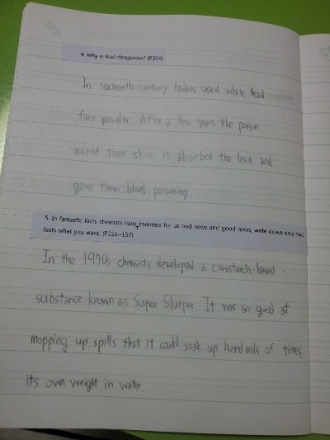 4. Why is lead dangerous? (P104)
In sixteenth century ladies used white lead
face powder. After a few years the poison
ruined their skin: it absorbed the lead and
gave them blood poisoning.
5. In fantastic facts chemists have invented for us bad news and good news, write down only two
facts what you want. (P155~157)
In the 1970s chemists developed a cornstarch-based
substance known as Super Slurper. It was so good at
mopping up spills that it could soak up hundreds of times
its own weight in water.